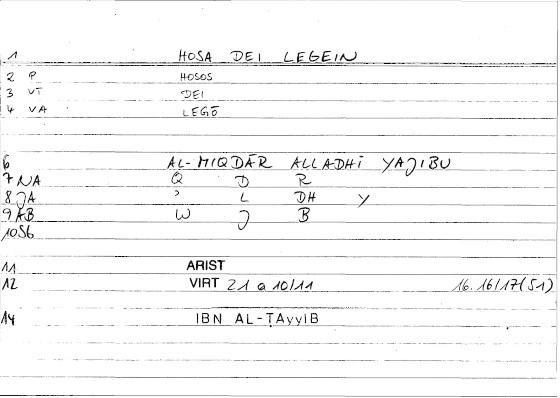 1 HOSA DEI LEGEIN
2 P HOSOS
3 VT DEI
4 VA LEGŌ
6 AL-MIQDĀR ALLADHĪ YAJIBU
7 NA Q D R
8 JA ' L DH Y
9 AB W J B
10 S6
11 ARIST
12 VIRT 21 a 10/11 16.16/17(S1)
14 IBN AL-ṬAyyIB